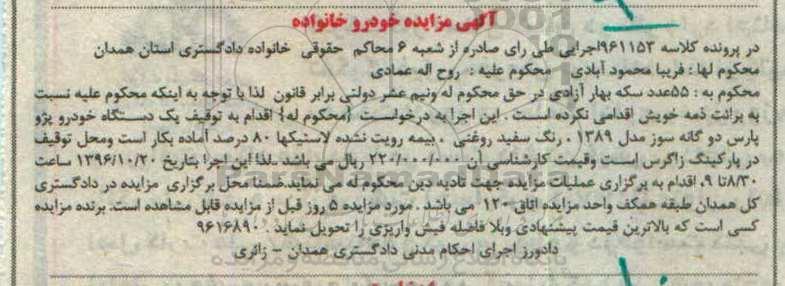 آگهی مزایده خودرو خانواده
در پرونده کلاسه ۹۶۱۱۵۳اجرایی طی رای صادره از شعبه ۶ محاکم حقوقی خانواده دادگستری استان همدان
محکوم لها : فریبا محمود آبادی محکوم علیه : روح اله عمادی
محکوم به : ۵۵عدد سکه بهار آزادی در حق محکوم له ونیم عشر دولتی برابر قانون لذا با توجه به اینکه محکوم علیه نسبت
به برائت ذمه خویش اقدامی نکرده است . این اجرا به درخواست {محکوم له} اقدام به توقیف یک دستگاه خودرو پژو
پارس دو گانه سوز مدل ۱۳۸۹ . رنگ سفید روغنی . بیمه رویت نشده لاستیکها ۸۰ درصد آماده بکار است ومحل توقیف
در پارکینگ زاگرس است وقیمت کارشناسی آن ۲۲۰/۰۰۰/۰۰۰ ریال می باشد .لذا این اجرا بتاریخ ۱۳۹۶/۱۰/۲۰ ساعت
۸/۳۰تا ۹. اقدام به برگزاری عملیات مزایده جهت تادیه دین محکوم له می نماید.ضمنا محل برگزاری مزایده در دادگستری
کل همدان طبقه همکف واحد مزایده اتاق ۱۲۰ می باشد . مورد مزایده ۵ روز قبل از مزایده قابل مشاهده است. برنده مزایده
کسی است که بالاترین قیمت پیشنهادی وبلا فاصله فیش واریزی را تحویل نماید ۹۶۱۶۸۹۰
دادورز اجرای احکام مدنی دادگستری همدان - زائری